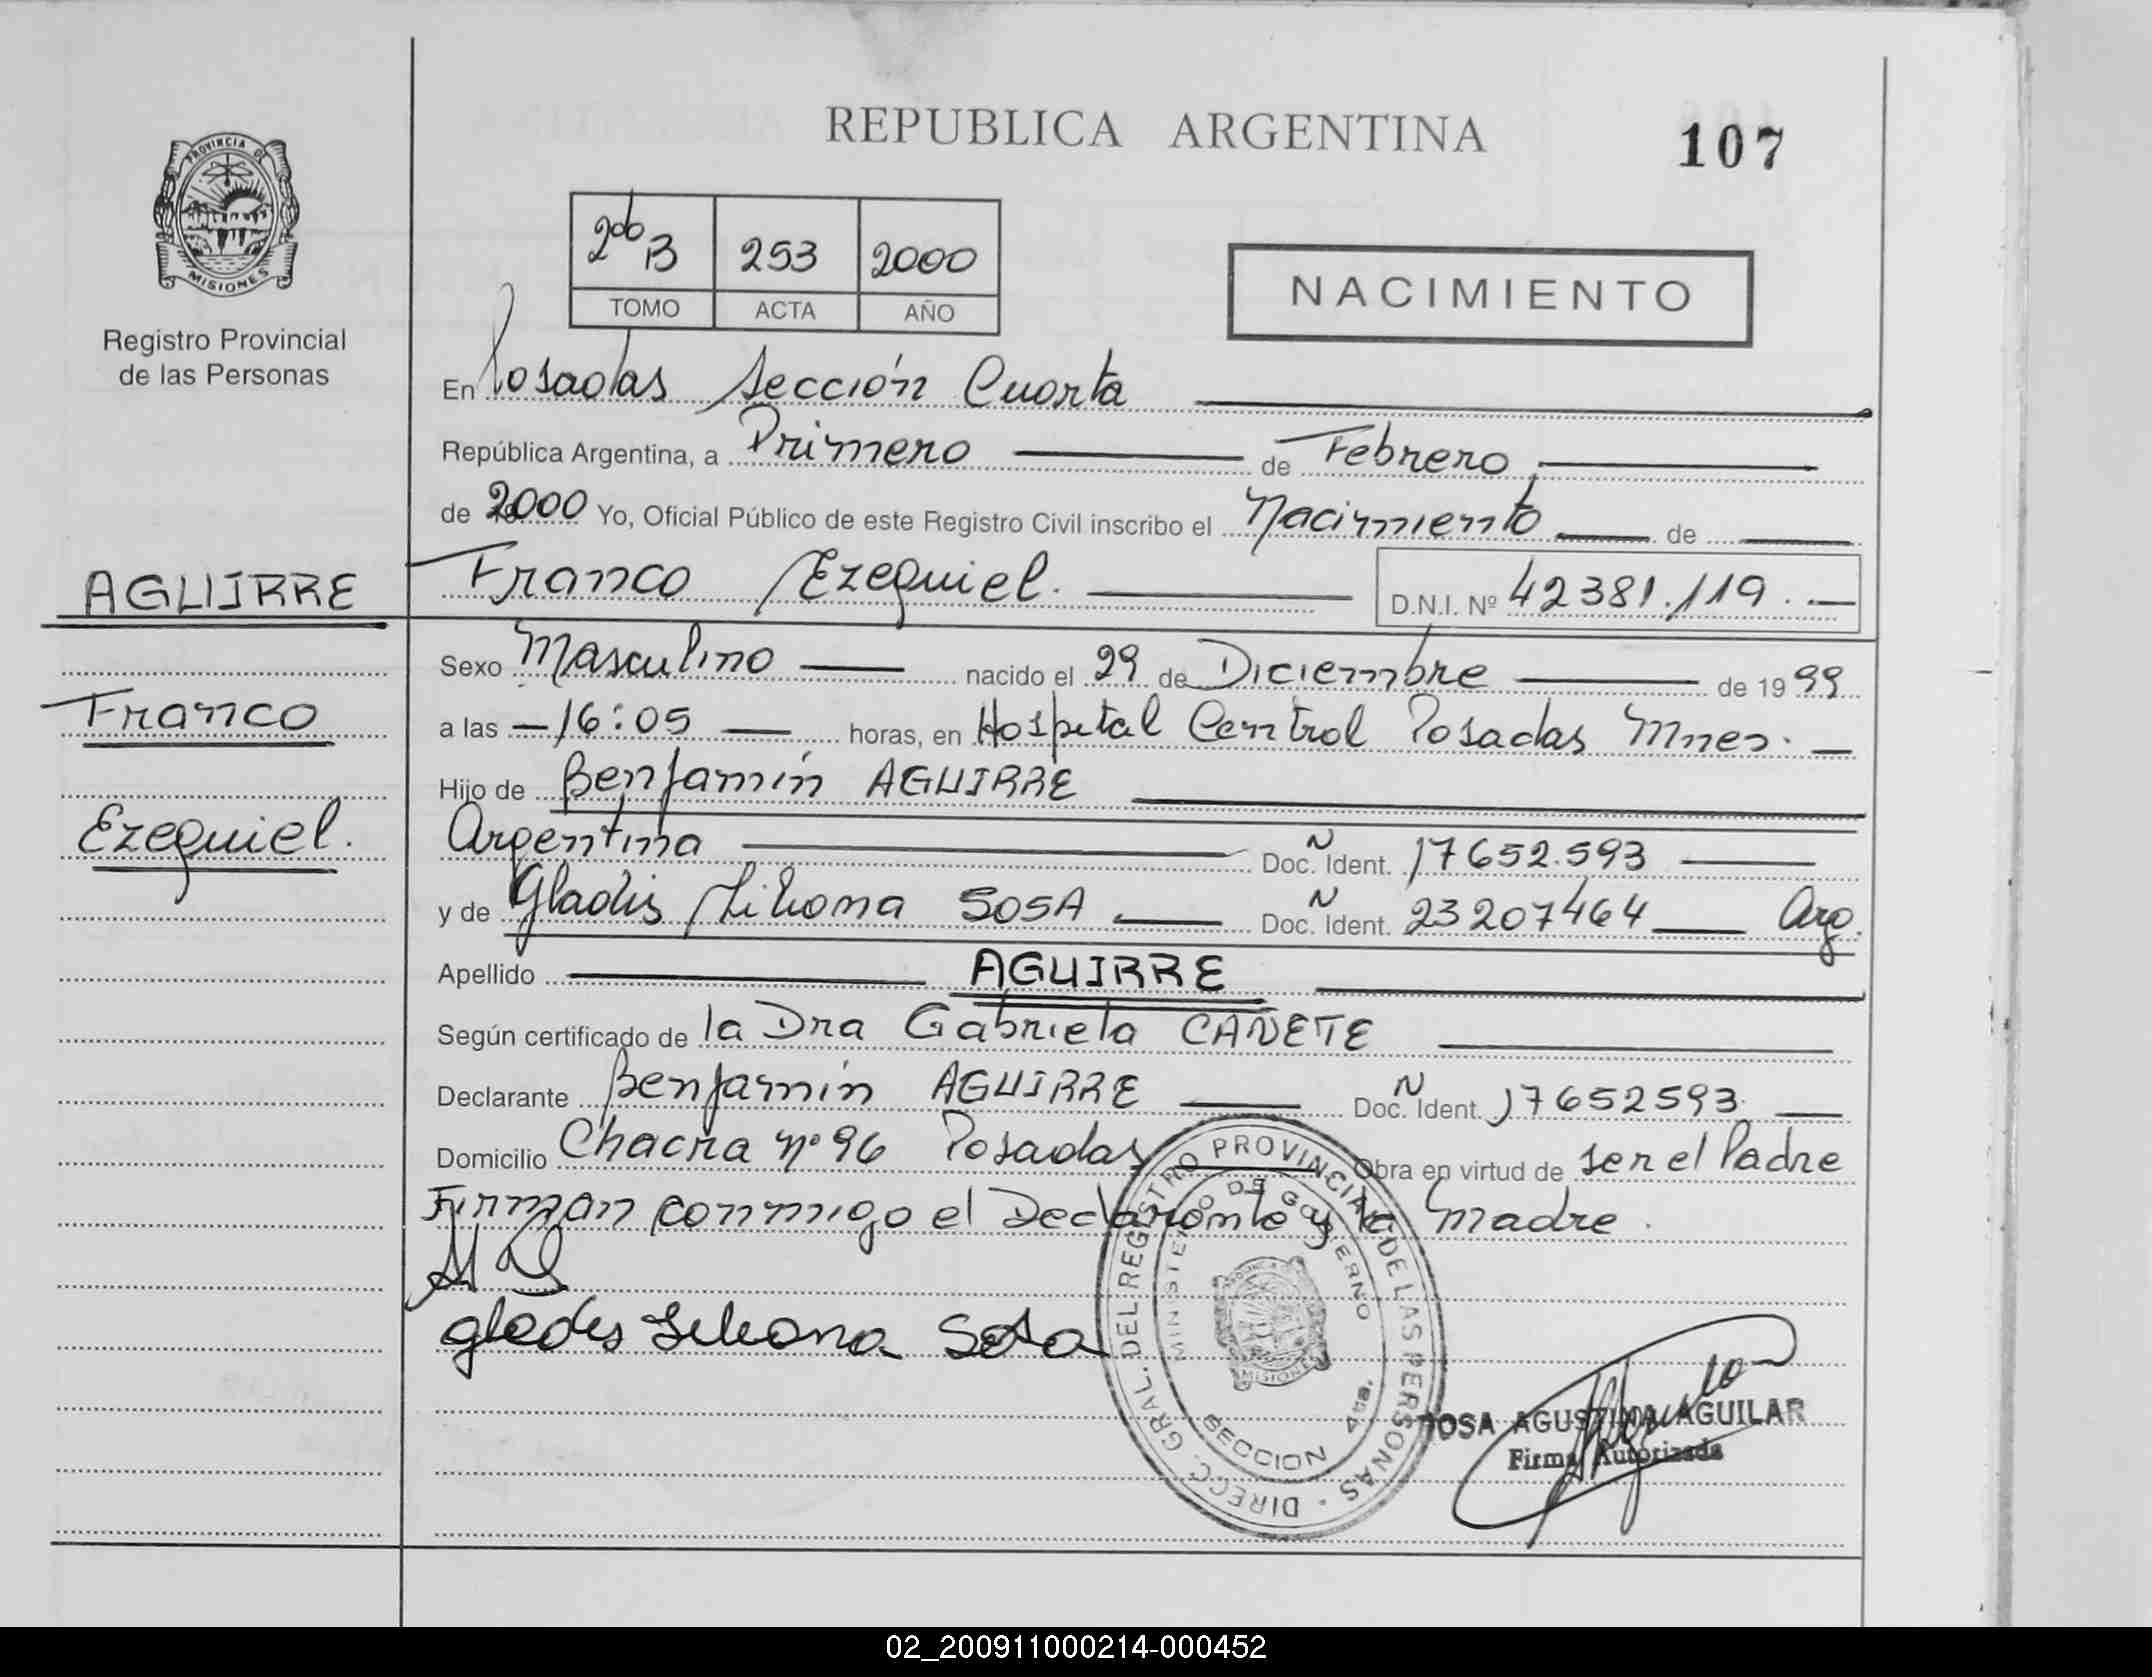 REPUBLICA ARGENTINA
107
PROVINCIA DE
MISIONES
Registro Provincial
de las Personas
2do B 253 2000
TOMO ACTA AÑO
NACIMIENTO
En Posadas Sección Cuarta
República Argentina, a Primero de Febrero
de 2000 Yo, Oficial Público de este Registro Civil inscribo el Nacimiento de
AGUIRRE
Franco Ezequiel.
D.N.I. Nº 42381.119.
Sexo Masculino nacido el 29 de Diciembre de 1999
Franco
a las 16:05 horas, en Hospital Central Posadas Mnes.
Hijo de Benjamín AGUIRRE
Ezequiel.
Argentina Doc. Ident. 17652.593
y de Gladis Liliana SOSA Doc. Ident. 23207464 Arg.
Apellido AGUIRRE
Según certificado de la Dra Gabriela CAÑETE
Declarante Benjamín AGUIRRE Doc. Ident. 17652593
Domicilio Chacra nº 96 Posadas Obra en virtud de ser el Padre
Firman conmigo el Declarante y la Madre.
Gladis Liliana Sosa
DIRECC. GRAL. DEL REGISTRO PROVINCIAL DE LAS PERSONAS
MINISTERIO DE GOBIERNO
MISIONES
SECCION 4ta.
ROSA AGUSTINA AGUILAR
Firma Autorizada
02_200911000214-000452